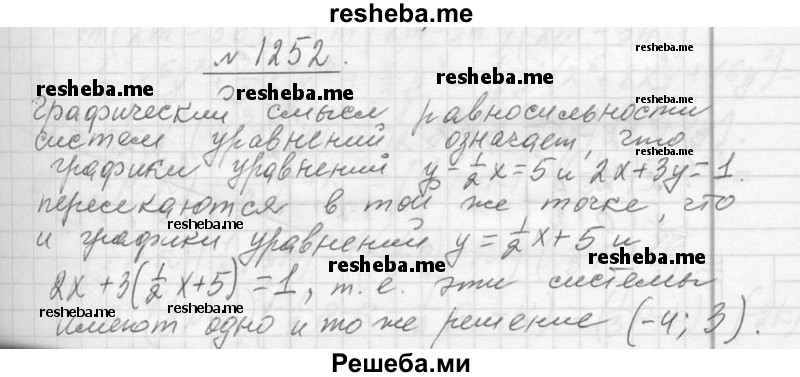 resheba.me
№ 1252.
resheba.me resheba.me
Графический смысл равносильности
систем уравнений означает, что
графики уравнений y - 1/2 x = 5 и 2x + 3y = 1.
пересекаются в той же точке, что
resheba.me resheba.me
и графики уравнений y = 1/2 x + 5 и
resheba.me
2x + 3(1/2 x + 5) = 1, т. е. эти системы
resheba.me resheba.me
имеют одно и то же решение (-4; 3).
Решеба.ми